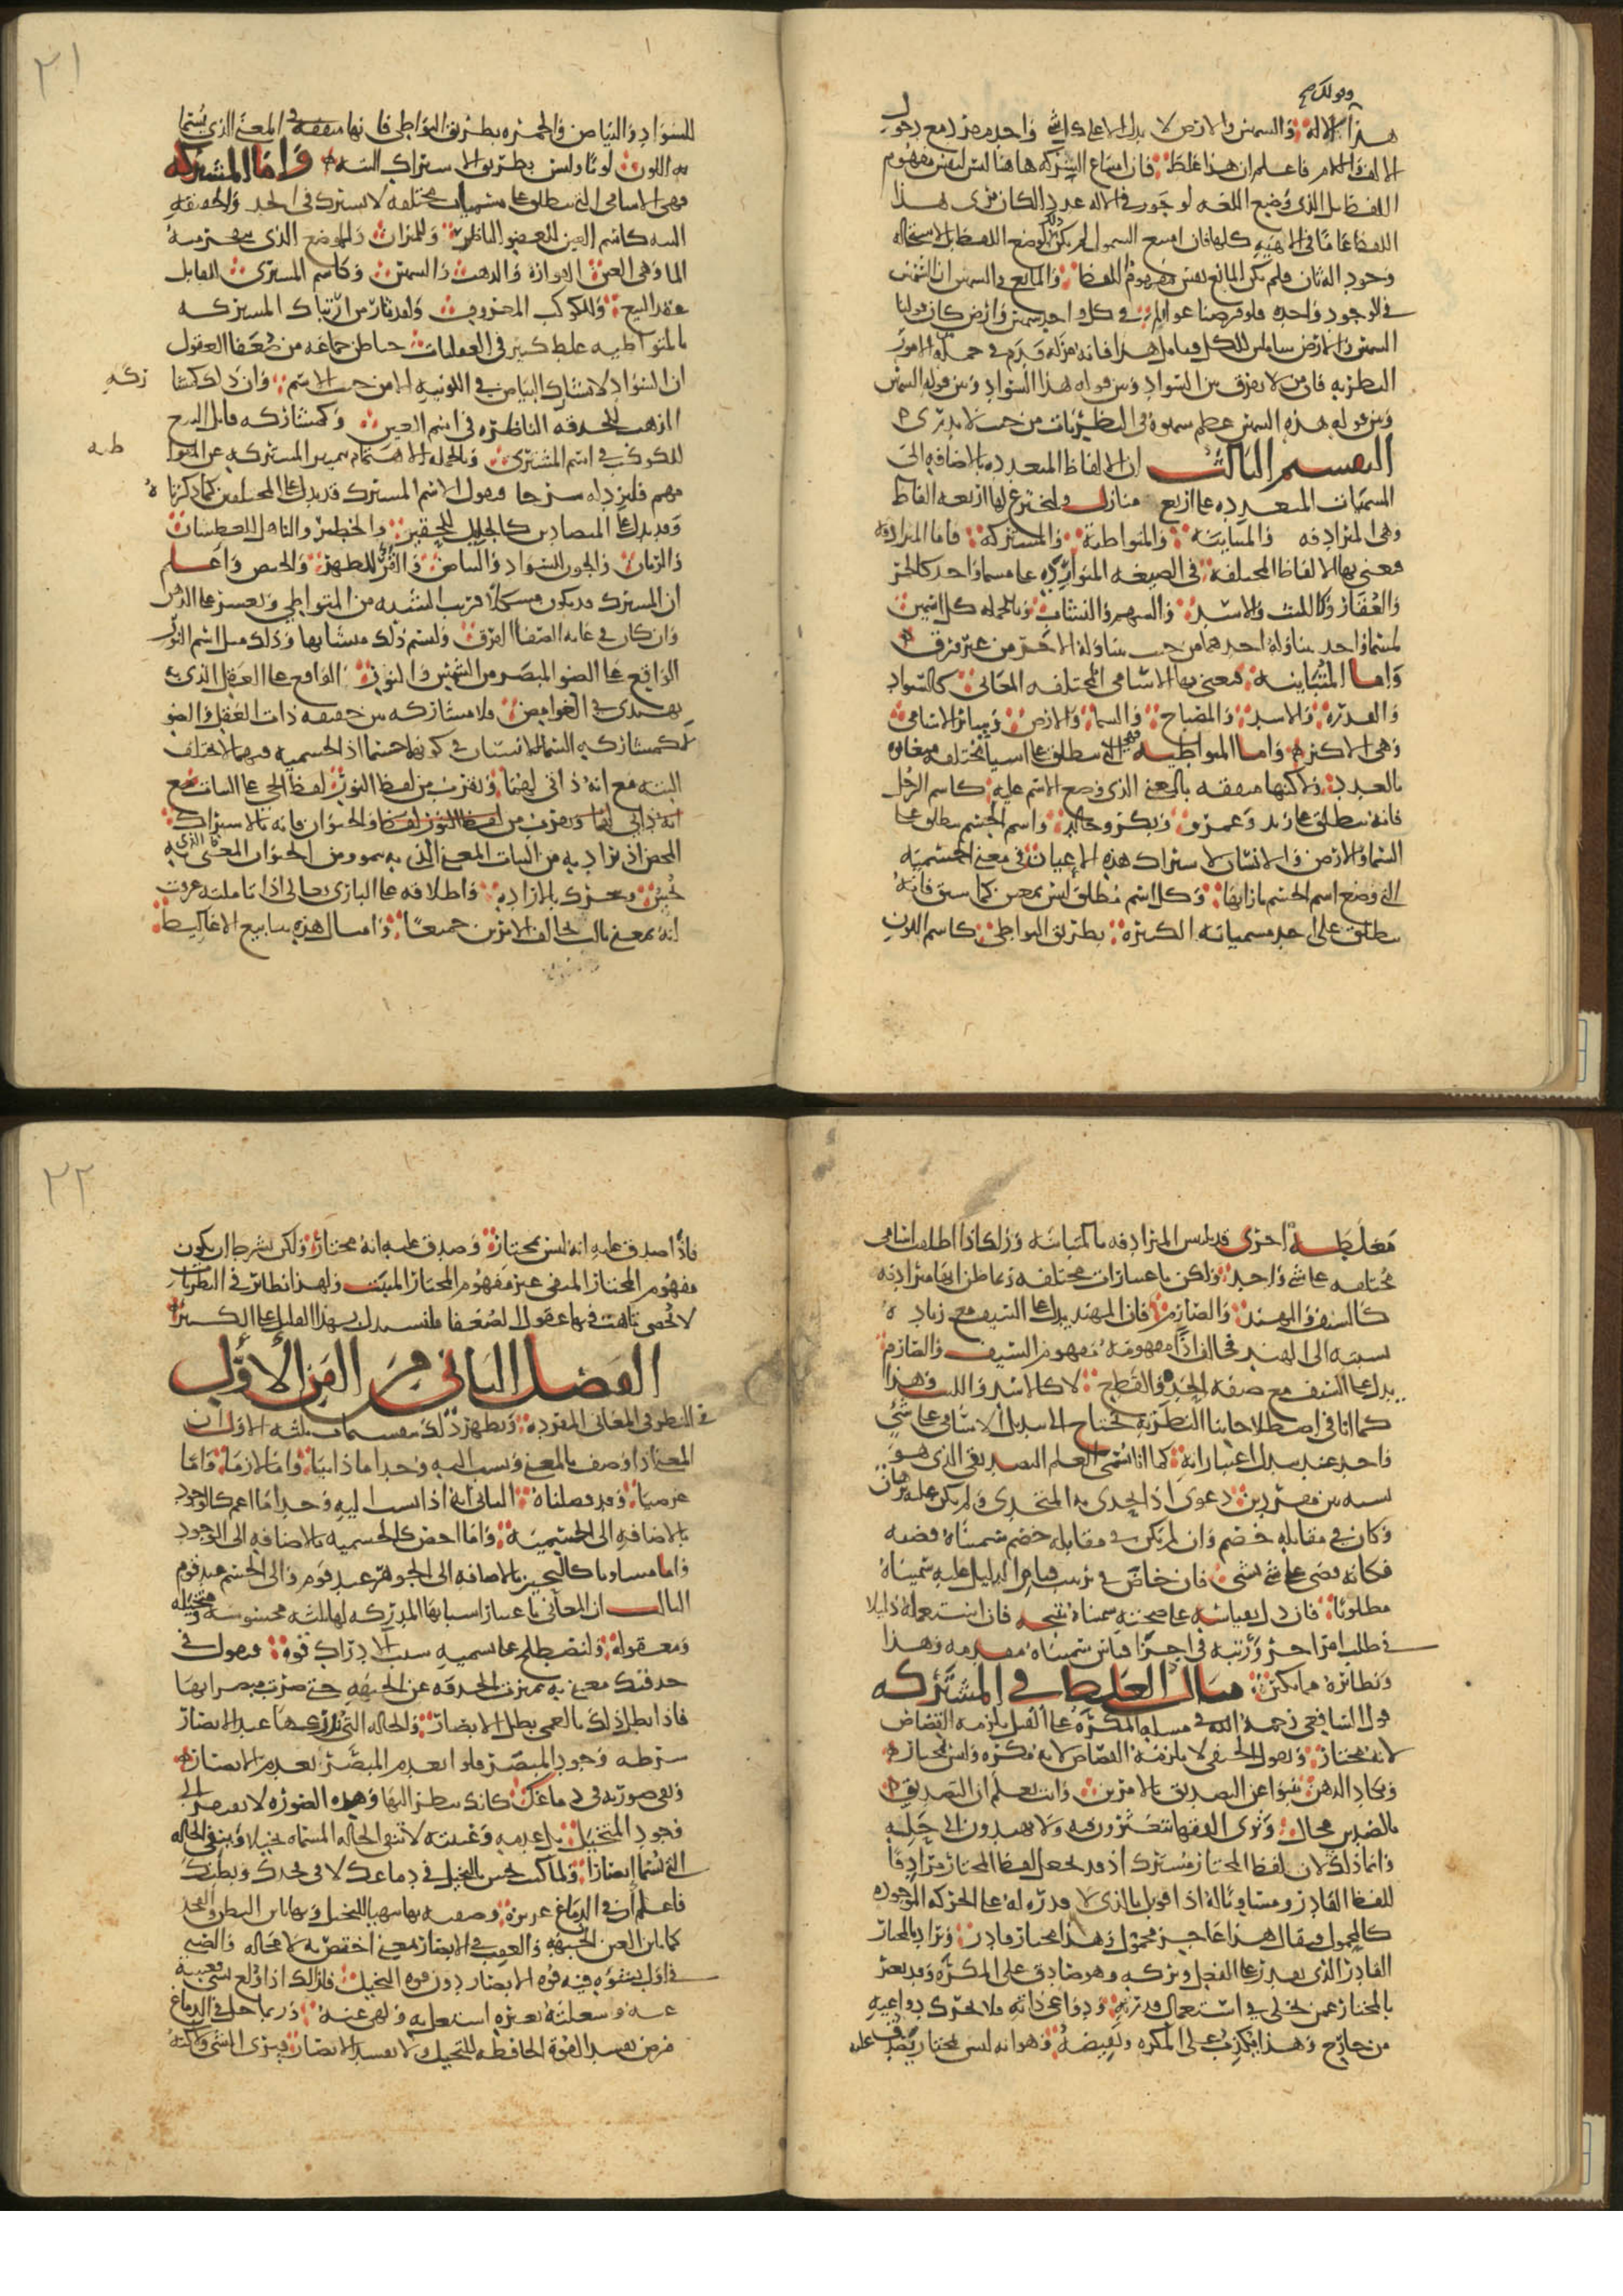 وقولك
هذا الاله والسمس والارض لا يدل الا على شي واحد مفرد مع دخول
الالف واللام فاعلم ان هذا غلط فان امتناع الشركه هاهنا ليس لنفس مفهوم
اللفظ بل الذي وضع اللغه لو جوز في الاله عددا لكان يرى هذا
اللفظ عاما في الالهيه كلها فان امتنع الشمول لم يكن لوضع اللفظ بل لاستحاله
وجود اله ثان فلم يكن المانع نفس مفهوم اللفظ والمانع في الشمس ان الشمس
في الوجود واحده فلو فرضنا عوالم في كل واحد شمس وارض كان قولنا
الشمس والارض شاملا للكل فتامل هذا فانه مزله قدم في جمله من الامور
النظريه فان من لا يفرق بين السواد وبين قوله هذا السواد وبين قوله الشمس
وبين قوله هذه الشمس عظم سهوه في النظريات من حيث لا يدري
التقسيم الثالث ان الالفاظ المتعدده بالاضافه الى
المسميات المتعدده على اربع منازل ولنخترع لها اربعه الفاظ
وهي المترادفه والمتباينه والمتواطئة والمشتركه فاما المترادفه
فنعني بها الالفاظ المختلفه في الصيغه المتوارده على مسما واحد كالخمر
والعقار وكالليث والاسد والسهم والنشاب وبالجمله كل اسمين
لمسما واحد يتناوله احدهما من حيث يتناوله الاخر من غير فرق
واما المتباينة فنعني بها الاسامى المختلفه المعاني كالسواد
والقدره والاسد والمفتاح والسما والارض وسائر الاسامى
وهي الاكثر واما المتواطيه فهي التي تنطلق على اشيا مختلفه متغايره
بالعدد ولاكنها متفقه بالمعنى الذي وضع الاسم عليه كاسم الرجل
فانه ينطلق على زيد وعمرو وبكر وخالد واسم الجسم ينطلق على
السما والارض والانسان لاشتراك هذه الاعيان في معنى الجسميه
التي وضع اسم الجسم بازايها وكل اسم مطلق ليس بمعين كما سبق فانه
ينطلق على احد مسمياته الكثيره بطريق التواطى كاسم اللون
٢١
للسواد والبياض والحمره بطريق التواطى فانها متفقه في المعنى الذي يسما
به اللون لونا وليس بطريق الاشتراك البته واما المشتركه
فهي الاسامى التي تنطلق على مسميات مختلفه لا تشترك في الحد والحقيقه
البته كاسم العين للعضو الناظر وللميزان وللموضع الذي يتفجر منه
الما وهي العين الفواره والذهب والشمس وكاسم المشترى لقابل
عقد البيع وللكوكب المعروف ولقد ثار من ارتباك المشتركه
بالمتواطيه غلط كثير في العقليات حتا ظن جماعه من ضعفا العقول
ان السواد لا يشارك البياض في اللونيه الا من حيث الاسم وان ذلك كمشا
ركه
الذهب للحدقه الناظره في اسم العين وكمشاركه قابل البيع
للكوكب في اسم المشترى وبالجمله الاهتمام بتمييز المشتركه عن المتوا
طيه
مهم فلنزد له شرحا فنقول الاسم المشترك قد يدل على المختلفين كما ذكرناه
وقد يدل على المتضادين كالجليل للحقير والخطير والناهل للعطشان
والريان والجون للسواد والبياض والقرؤ للطهر والحيض واعلم
ان المشترك قد يكون مشكلا قريب الشبه من المتواطي ويعسر على الذهن
وان كان في غايه الصفا الفرق ولنسم ذلك متشابها وذلك مثل اسم النور
الواقع على الضو المبصر من الشمس والنور الواقع على العقل الذي به
يهتدى في الغوامض فلا مشاركه بين حقيقه ذات العقل والضو
الا كمشاركه السما للانسان في كونها جسما اذ الجسميه فيهما لا تختلف
البته مع انه ذاتي لهما ويقرب من لفظ النور لفظ الحي على النبات مع
انه ذاتي لهما ويقرب من لفظ النور لفظ والحيوان فانه بالاشتراك
المحض اذ يراد به من النبات المعنى الذي به نموه ومن الحيوان المعنى الذي به
يحس ويتحرك بالاراده واطلاقه على الباري تعالى اذا تاملته عرفت
انه بمعنى ثالث يخالف الامرين جميعا وامثال هذه ينابيع الاغاليط
مغلطه اخرى قد تلتبس المترادفه بالمتباينه وذلك اذا اطلقت اسامى
مختلفه على شي واحد ولكن باعتبارات مختلفه ربما ظن انها مترادفه
كالسيف والمهند والصارم فان المهند يدل على السيف مع زياده
نسبه الى الهند فخالف اذا مفهومه مفهوم السيف والصارم
يدل على السيف مع صفه الحده والقطع لا كالاسد والليث وهذا
كما انا في اصطلاحاتنا النظريه نحتاج الى تبديل الاسامي على شئ
واحد عند تبدل اعتباراته كما انا نسمى العلم التصديقي الذي هو
نسبه بين مفردين دعوى اذا تحدى به المتحدى ولم يكن عليه برهان
وكان في مقابله خصم وان لم يكن في مقابله خصم سميناه قضيه
فكانه قضى على شي بشي فان خاض في ترتيب قياس الدليل عليه سميناه
مطلوبا فان دل بقياسه على صحته سميناه نتيجه فان استعمله دليلا
في طلب امر اخر ورتبه في اجزا قياس سميناه مقدمه وهذا
ونظائره مما يكثر مثال الغلط في المشتركه
قول الشافعي رحمه الله في مسئله المكره على القتل يلزمه القصاص
لانه مختار ويقول الحنفي لا يلزمه القصاص لانه مكره وليس بمختار
ويكاد الذهن ينبوا عن التصديق بالامرين وانت تعلم ان التصديق
بالضدين محال وترى الفقها يتعثرون فيه ولا يهتدون الى حله
وانما ذلك لان لفظ المختار مشترك اذ قد يجعل لفظ المختار مرادفا
للفظ القادر ومساويا له اذا قوبل بالذي لا قدره له على الحركه الموجوده
كالمحمول فيقال هذا عاجز محمول وهذا مختار قادر ويراد بالمختار
القادر الذي يقدر على الفعل وتركه وهو صادق على المكره وقد يعبر
بالمختار عمن تخلى في استعمال قدرته ودواعي ذاته فلا تحرك دواعيه
من خارج وهذا يكذب على المكره ونقيضه وهو انه ليس بمختار يصدق عليه
٢٢
فاذا صدق عليه انه ليس بمختار وصدق عليه انه مختار ولكن بشرط ان يكون
مفهوم المختار المنفي غير مفهوم المختار المثبت ولهذا نظائر في النظريات
لا تحصى تاهت فيها عقول الضعفا فليستدل بهذا القليل على الكثير
الفصل الثاني من الفن الأول
في النظر في المعاني المفرده ويظهر ذلك بتقسيمات ثلثه الاول ان
المعنى اذا وصف بالمعنى ونسب اليه وجد اما ذاتيا واما لازما واما
عرضيا وقد فصلناه الثاني انه اذا نسب اليه وجد اما اعم كالوجود
بالاضافه الى الجسميه واما اخص كالجسميه بالاضافه الى الوجود
واما مساويا كالتحيز بالاضافه الى الجوهر عند قوم والى الجسم عند قوم
الثالث ان المعاني باعتبار اسبابها المدركه لها ثلثه محسوسه ومتخيله
ومعقوله ولنصطلح على تسميه سبب الادراك قوه فنقول في
حدقتك معنى به تميزت الحدقه عن الجبهه حتى صرت تبصر بها
فاذا بطل ذلك بالعمى بطل الابصار والحاله التي تدركها عند الابصار
شرطه وجود المبصر فلو انعدم المبصر انعدم الابصار
وبقى صورته في دماغك كانك تنظر اليها وهذه الصوره لا تفتقر الى
وجود المتخيل بل عدمه وغيبته لا تنفي الحاله المسماه تخيلا وينفي الحاله
التي تسما ابصارا ولما كنت تحس بالتخيل في دماغك لا في فخذك وبطنك
فاعلم ان في الدماغ غريزه وصفه بها يتهيا للتخيل وبها باين البطن والفخذ
كما باين العين الجبهه والعقب في الابصار بمعنى اختص به لا محاله والصبي
في اول نشوه فيه قوه الابصار دون قوه التخيل فلذلك اذا ولع بشي فغيبته
عنه وشغلته بغيره اشتغل به ولهى عنه وربما حل في الدماغ
مرض يفسد القوة الحافظه للتخيل ولا يفسد الابصار فيرى الشي ولكنه